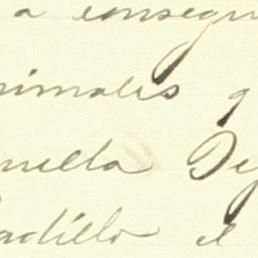 a consegu
nimales q
nella De
adillo el